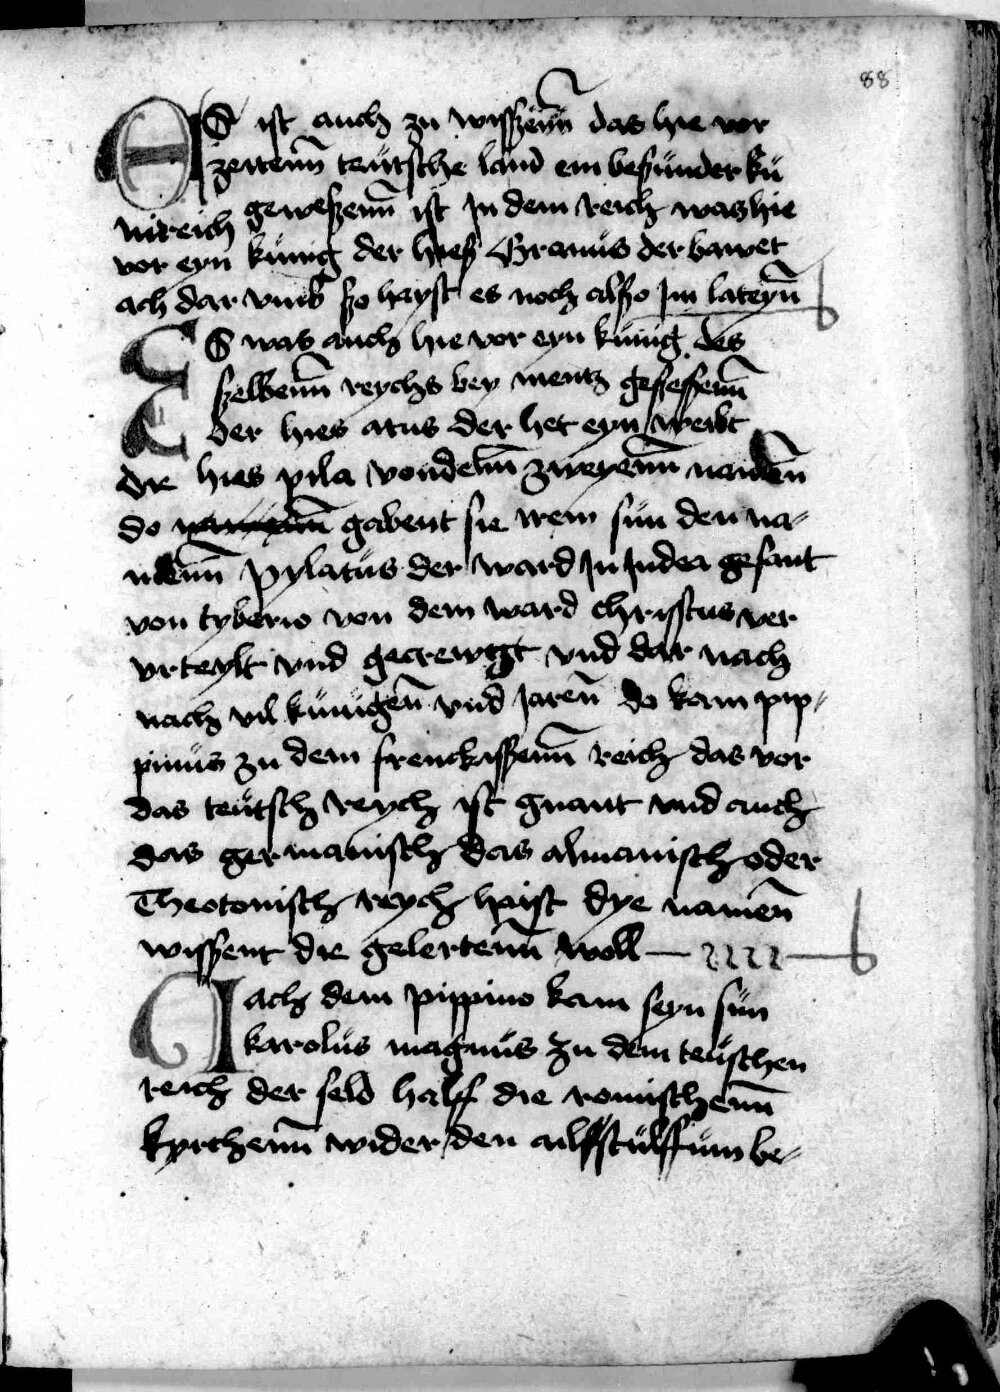 88
ES ist auch zu wisszenn das hie vor
zeitenn teütsche land ein besünder kü
nireich geweszenn ist Jn dem reich was hie
vor eyn künig der hies Granüs der bawet
ach dar vmb szo hayst es noch allszo Jm lateyn
ES was auch hie vor eyn künig des
szelbenn reychs bey mentz gesessenn
der hies atus der het eyn weibt
die hies pila von denn zweyenn namen
do gabent sie irem sün den na-
menn pylatüs der ward Jn Judea gesant
von tyberio von dem ward christus ver
vrteylt vnd gecrewtzgt vnd dar nach
nach vil künigen vnd Jaren do kam pip-
pinüs zu dem frenckisszenn reich das vor
das teütsch reych ist gnant vnd auch
das germanisch das almanisch oder
Theotonisch reych haist dye namen
wisszent die gelertenn woll
Nach dem pippino kam seyn sün
karolüs magnüs zu dem teüschen
reich der selb halff die romischenn
kyrchenn wider den aillstülffüm be-